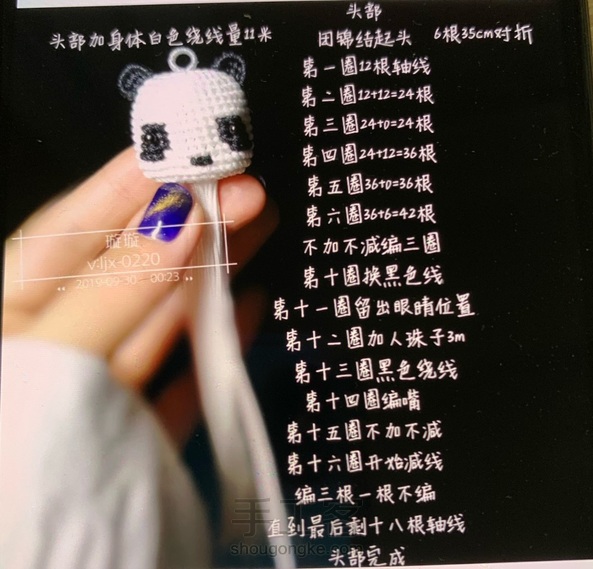 头部
头部加身体白色绕线量11米
团锦结起头 6根35cm对折
第一圈12根轴线
第二圈12+12=24根
第三圈24+0=24根
第四圈24+12=36根
第五圈36+0=36根
第六圈36+6=42根
不加不减编三圈
第十圈换黑色线
第十一圈留出眼睛位置
第十二圈加人珠子3m
第十三圈黑色绕线
第十四圈编嘴
第十五圈不加不减
第十六圈开始减线
编三根一根不编
直到最后剩十八根轴线
头部完成
璇璇
v:ljx-0220
2019-09-30 00:23
shougongke.com